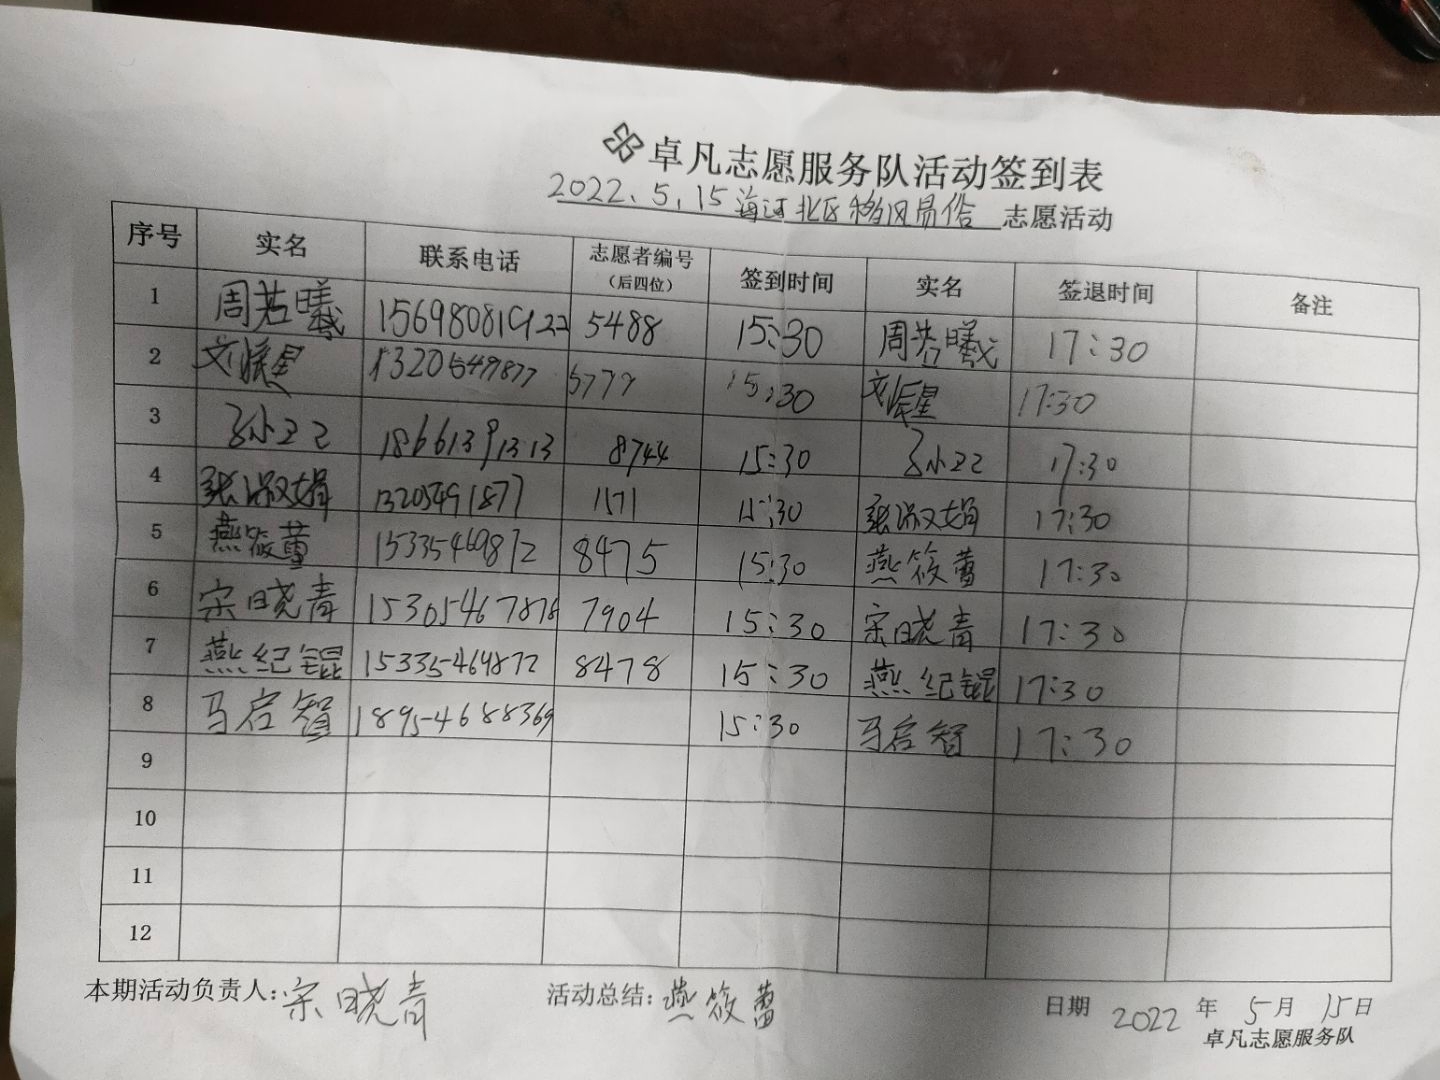 卓凡志愿服务队活动签到表
2022.5.15海河北区移风易俗 志愿活动
序号 实名 联系电话 志愿者编号（后四位） 签到时间 实名 签退时间 备注
1 周若曦 15698081922 5488 15:30 周若曦 17:30
2 13205497877 5777 15:30 17:30
3 18661391313 8744 15:30 17:30
4 张淑娟 13205491877 1171 15:30 张淑娟 17:30
5 燕筱蕾 15335469872 8475 15:30 燕筱蕾 17:30
6 宋晓青 15305467878 7904 15:30 宋晓青 17:30
7 燕纪锟 15335469872 8478 15:30 燕纪锟 17:30
8 马启智 18954688369 15:30 马启智 17:30
9
10
11
12
本期活动负责人：宋晓青 活动总结：燕筱蕾 日期 2022 年 5 月 15 日
卓凡志愿服务队